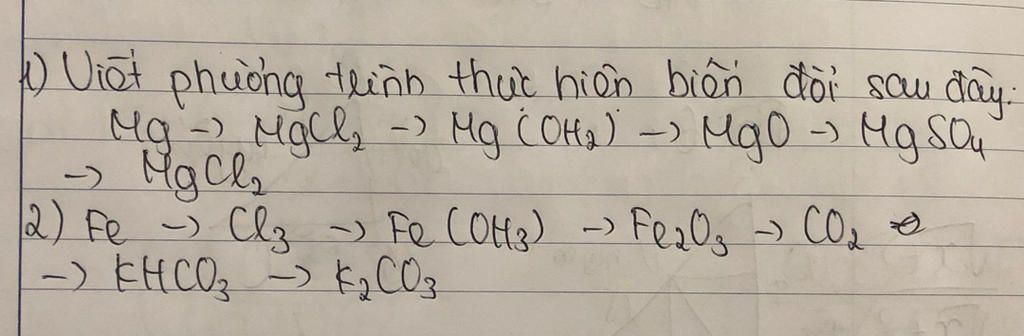 1) Viết phương trình thực hiện biến đổi sau đây:
Mg → MgCl₂ → Mg (OH₂) → MgO → MgSO₄
→ MgCl₂
2) Fe → Cl₃ → Fe (OH₃) → Fe₂O₃ → CO₂
→ KHCO₃ → K₂CO₃